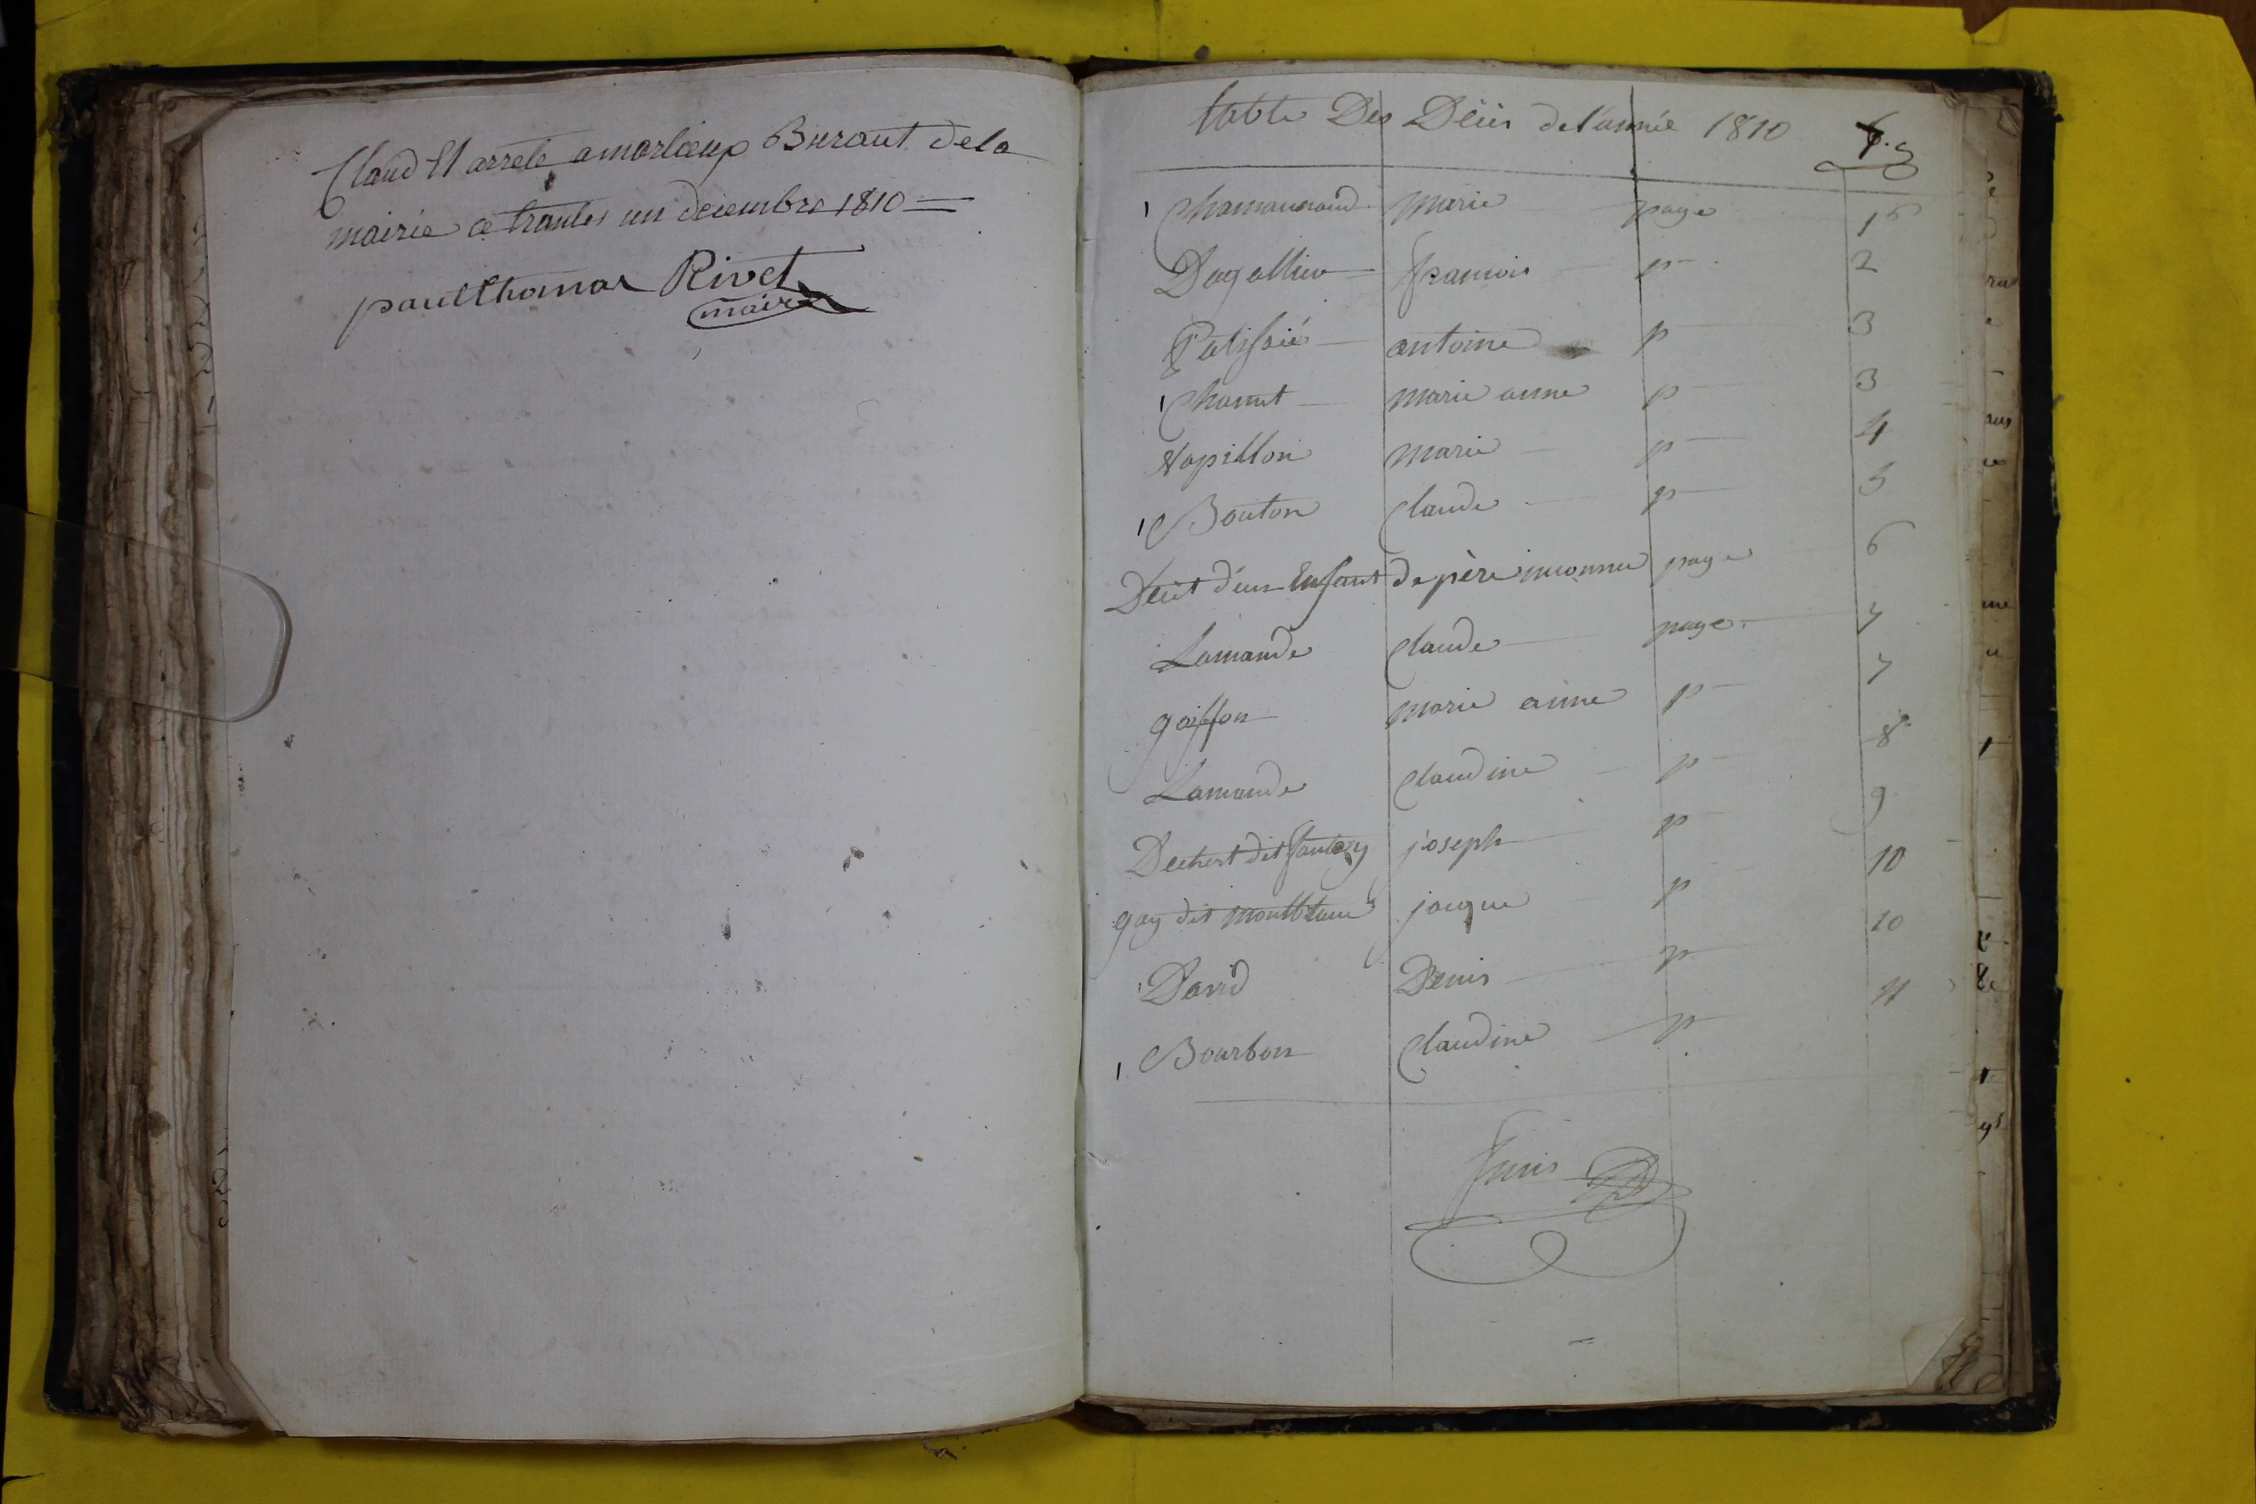 Claud Et arrete a marlieux Buraut de la
mairie ce trantes un decembre 1810
paul thomas Rivet
maire
table Des Décès de l'année 1810
marie page 1
Dagallieu francois p 2
Patissié antoine p 3
Chanut marie anne p 3
Papillon marie p 4
Bouton Claude p 5
Décet d'un Enfant de père inconnu page 6
Lamande Claude page 7
goiffon marie anne p 7
Lamande Claudine p 8
Dechert dit joseph p 9
gay dit montblanc jacque p 10
David Denis p 10
Bourbon Claudine p 11
finis